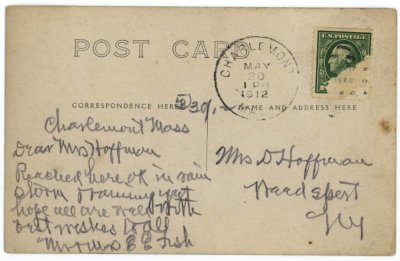 POST CARD
CHARLEMONT
MAY
30
1 PM
1912
U.S. POSTAGE
CORRESPONDENCE HERE
5/30/12
NAME AND ADDRESS HERE
Charlemont Mass
Dear Mrs Hoffman
Reached here, OK in rain
storm raining yet
hope all are well with
best wishes to all
Mr & Mrs E E Fish
Mrs D Hoffman
Weedsport
NY